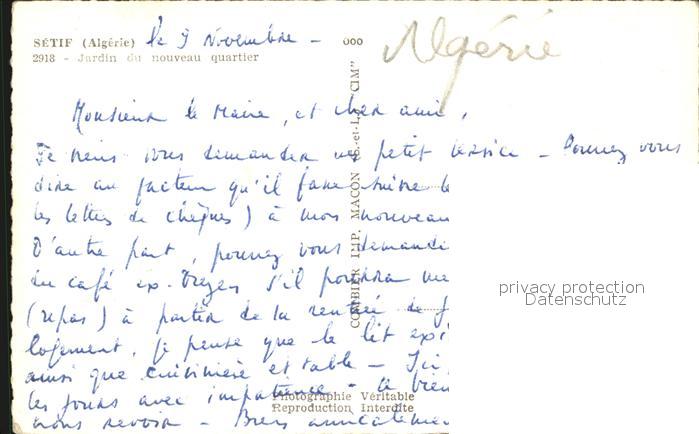 SÉTIF (Algérie) le 3 Novembre -
2918 - Jardin du nouveau quartier
000
Algérie
COMBIER IMP. MACON (S.-et-L.) "CIM"
Monsieur le Maire, et cher ami,
Je viens vous demander un petit service - Pourriez vous
dire au facteur qu'il fasse suivre le
les lettres de chèques) à mon nouveau
D'autre part, pourriez vous demande
du café ex. s'il pourra me
(repas) à partir de la rentrée de
logement, je pense que le lit exi
ainsi que cuisinière et table -
les jours avec impatience - de bien
nous revoir - Bien amicalemen
privacy protection
Datenschutz
Photographie Véritable
Reproduction Interdite